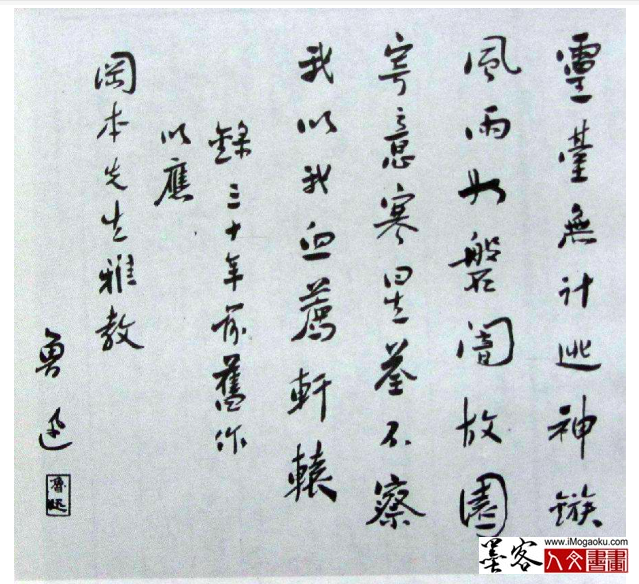 靈臺無計逃神鏃
風雨如磐闇故園
寄意寒星荃不察
我以我血薦軒轅
錄三十年前舊作
以應
岡本先生雅教
魯迅
魯迅
墨客
www.iMogaoku.com
人文書畫